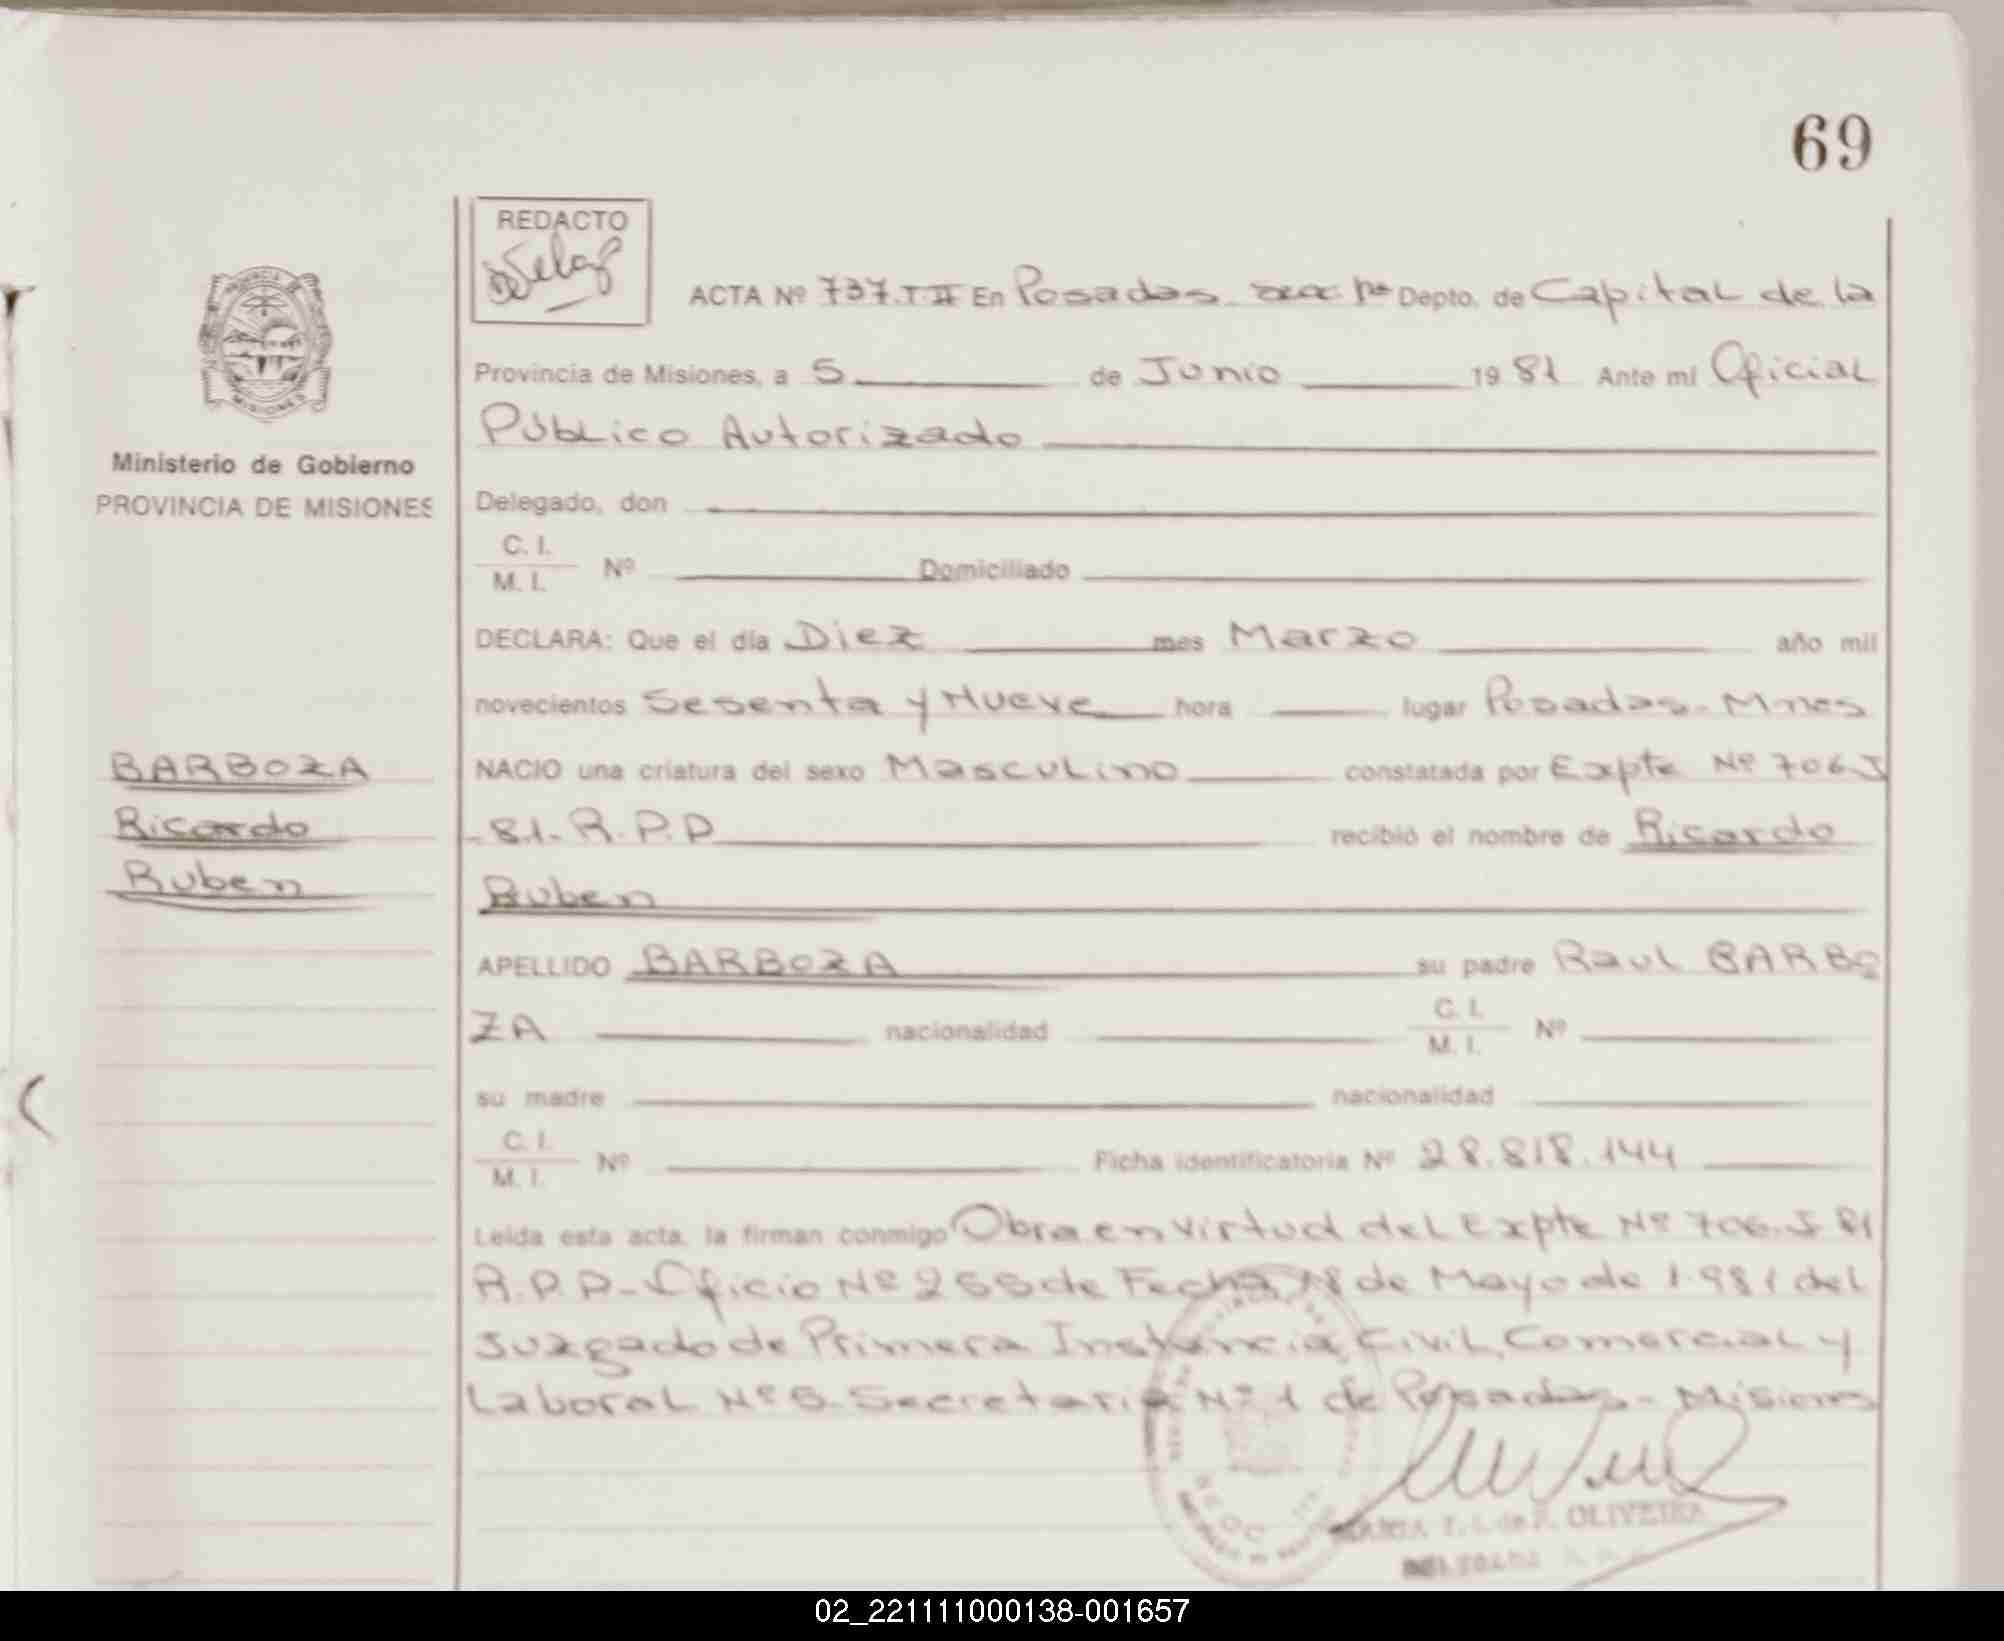 69
REDACTO
ACTA Nº 737.T II En Posadas Depto. de Capital de la
Provincia de Misiones, a 5 de Junio 1981 Ante mí Oficial
Público Autorizado
Ministerio de Gobierno
PROVINCIA DE MISIONES
MISIONES
Delegado, don
C. I.
M. I. Nº Domiciliado
DECLARA: Que el día Diez mes Marzo año mil
novecientos Sesenta y Nueve hora lugar Posadas - Mnes
BARBOZA
Ricardo
Ruben
NACIO una criatura del sexo Masculino constatada por Expte Nº 706.J
-81- R.P.P recibió el nombre de Ricardo
Ruben
APELLIDO BARBOZA su padre Raul BARBO
ZA nacionalidad C. I. M. I. Nº
su madre nacionalidad
C. I.
M. I. Nº Ficha identificatoria Nº 28.818.144
Leída esta acta, la firman conmigo Obra en virtud del Expte Nº 706.J 81
R.P.P - Oficio Nº 255 de Fecha 18 de Mayo de 1.981 del
Juzgado de Primera Instancia Civil, Comercial y
Laboral Nº 5 - Secretaria Nº 1 de Posadas - Misiones
OLIVEIRA
02_221111000138-001657